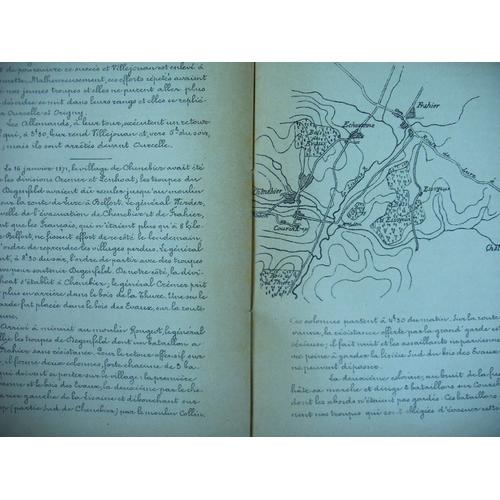 et de poursuivre ce succès et Villejouan est enlevé à
Malheureusement, ces efforts répétés avaient
nos jeunes troupes et elles ne purent aller plus
désordre se mit dans leurs rangs et elles se replié-
Ourcelle et Origny.
Les Allemands, à leur tour, exécutent un retour
qui, à 3h30, leur rend Villejouan et, vers 5h du soir,
; mais ils sont arrêtés devant Ourcelle.
Le 16 janvier 1871, le village de Chenebier avait été
les divisions Cremer et Penhoat; les troupes du
Degenfeld avaient dû reculer jusqu'au moulin
sur la route de Lure à Belfort. Le général Werder,
nouvelle de l'évacuation de Chenebier et de Frahier,
ant que les Français, qui n'étaient plus qu'à 8 kilo-
Belfort, ne fissent effort de ce côté le lendemain,
l'ordre de reprendre les villages perdus. Le général
ut, à 8h30 du soir, l'ordre de partir avec des troupes
pour soutenir Degenfeld. De notre côté, la divi-
hoat s'établit à Chenebier; le général Cremer prit
plus en arrière dans le bois de la Thure. Une seule
garde fut placée dans le bois des Evaux, sur la route
Arrivé à minuit au moulin Rougeot, le général
les troupes de Degenfeld dont un bataillon a
Frahier sans résistance. Pour le retour offensif sur
, il forme deux colonnes, forte chacune de 3 ba-
qui doivent se porter sur le village: la première
et le bois des Evaux, la deuxième par le che-
rive gauche de la Lizaine et débouchant sur
(partie Sud de Chenebier) par le moulin Colin.
Frahier
Echavanne
Bois des
Evaux
Chenebier
Courchamp
Lure
Ces colonnes partent à 4h30 du matin. Sur la route
vanne, la résistance offerte par la grand'garde est
sérieuse; il fait nuit et les assaillants ne parviennent
me peine à garder la lisière Sud du bois des Evaux
ne peuvent déposer.
La deuxième colonne, au bruit de la fusi
hâte sa marche et dirige 2 bataillons sur Cour
dont les abords n'étaient pas gardés. Ces bataillons
nent nos troupes qui sont obligées d'évacuer cette